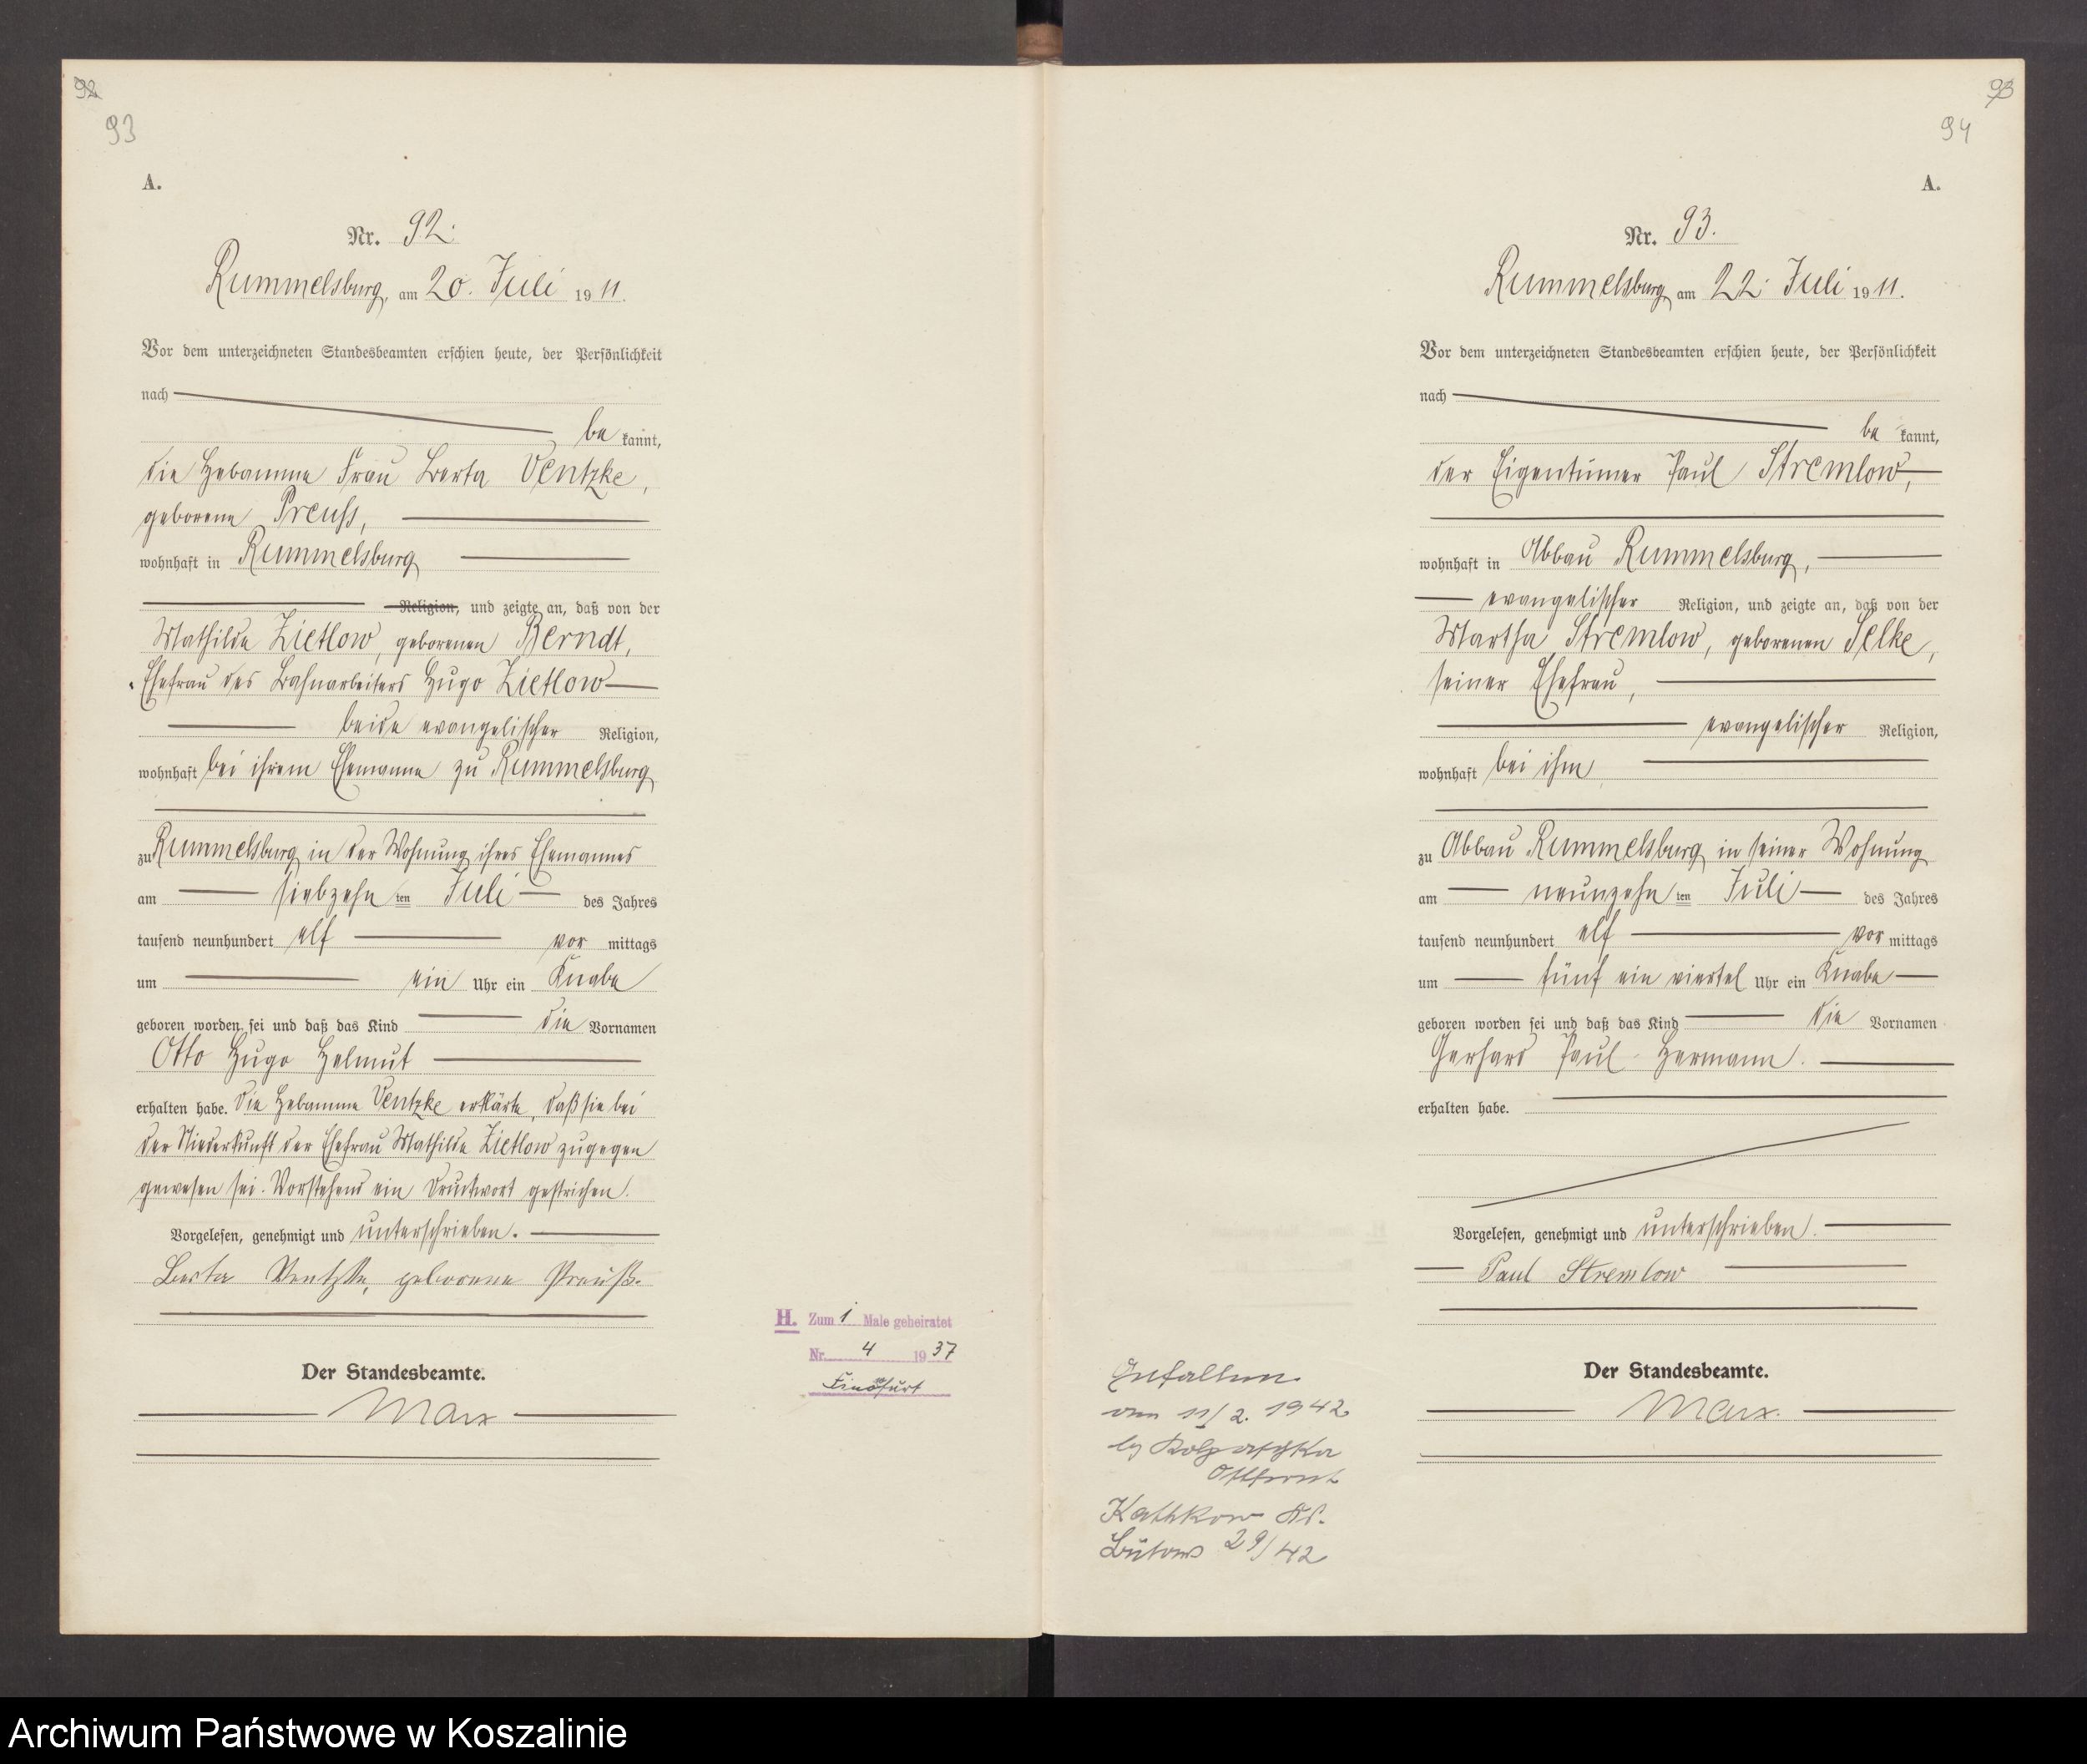 92
93
A.
Nr. 92.
Rummelsburg, am 20. Juli 1911.
Vor dem unterzeichneten Standesbeamten erschien heute, der Persönlichkeit
nach
be kannt,
die Hebamme Frau Berta Ventzke,
geborene Preuss,
wohnhaft in Rummelsburg
Religion, und zeigte an, daß von der
Mathilde Zietlow, geborenen Berndt,
Ehefrau des Bahnarbeiters Hugo Zietlow
beide evangelischer Religion,
wohnhaft bei ihrem Ehemanne zu Rummelsburg
zu Rummelsburg in der Wohnung ihres Ehemannes
am siebzehn ten Juli des Jahres
tausend neunhundert elf vor mittags
um ein Uhr ein Knabe
geboren worden sei und daß das Kind die Vornamen
Otto Hugo Helmut
erhalten habe. Die Hebamme Ventzke erklärte, daß sie bei
der Niederkunft der Ehefrau Mathilde Zietlow zugegen
gewesen sei. Vorstehend ein Druckwort gestrichen.
Vorgelesen, genehmigt und unterschrieben.
Berta Ventzke, geborene Preuß.
Der Standesbeamte.
Marx
H. Zum 1 Male geheiratet
Nr. 4 1937
Finowfurt
93
94
A.
Nr. 93.
Rummelsburg am 22. Juli 1911.
Vor dem unterzeichneten Standesbeamten erschien heute, der Persönlichkeit
nach
be kannt,
der Eigentümer Paul Stremlow,
wohnhaft in Abbau Rummelsburg,
evangelischer Religion, und zeigte an, daß von der
Martha Stremlow, geborenen Selke,
seiner Ehefrau,
evangelischer Religion,
wohnhaft bei ihm
zu Abbau Rummelsburg in seiner Wohnung
am neunzehn ten Juli des Jahres
tausend neunhundert elf vor mittags
um fünf ein viertel Uhr ein Knabe
geboren worden sei und daß das Kind die Vornamen
Gerhard Paul Hermann.
erhalten habe.
Vorgelesen, genehmigt und unterschrieben.
Paul Stremlow
Der Standesbeamte.
Marx.
Gefallen
am 11/2. 1942
Ostfront
Kathkow Kr.
Bütow 29/42
Archiwum Państwowe w Koszalinie